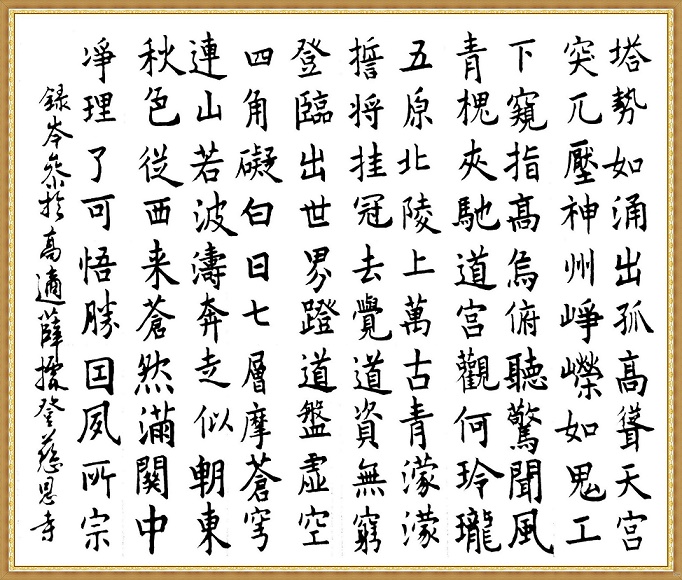 塔勢如涌出孤高聳天宮
突兀壓神州崢嶸如鬼工
下窺指高鳥俯聽驚聞風
青槐夾馳道宮觀何玲瓏
五原北陵上萬古青濛濛
誓将挂冠去覺道資無窮
登臨出世界蹬道盤虛空
四角礙白日七層摩蒼穹
連山若波濤奔走似朝東
秋色從西来蒼然滿關中
淨理了可悟勝因夙所宗
錄岑參於高適薛據登慈恩寺